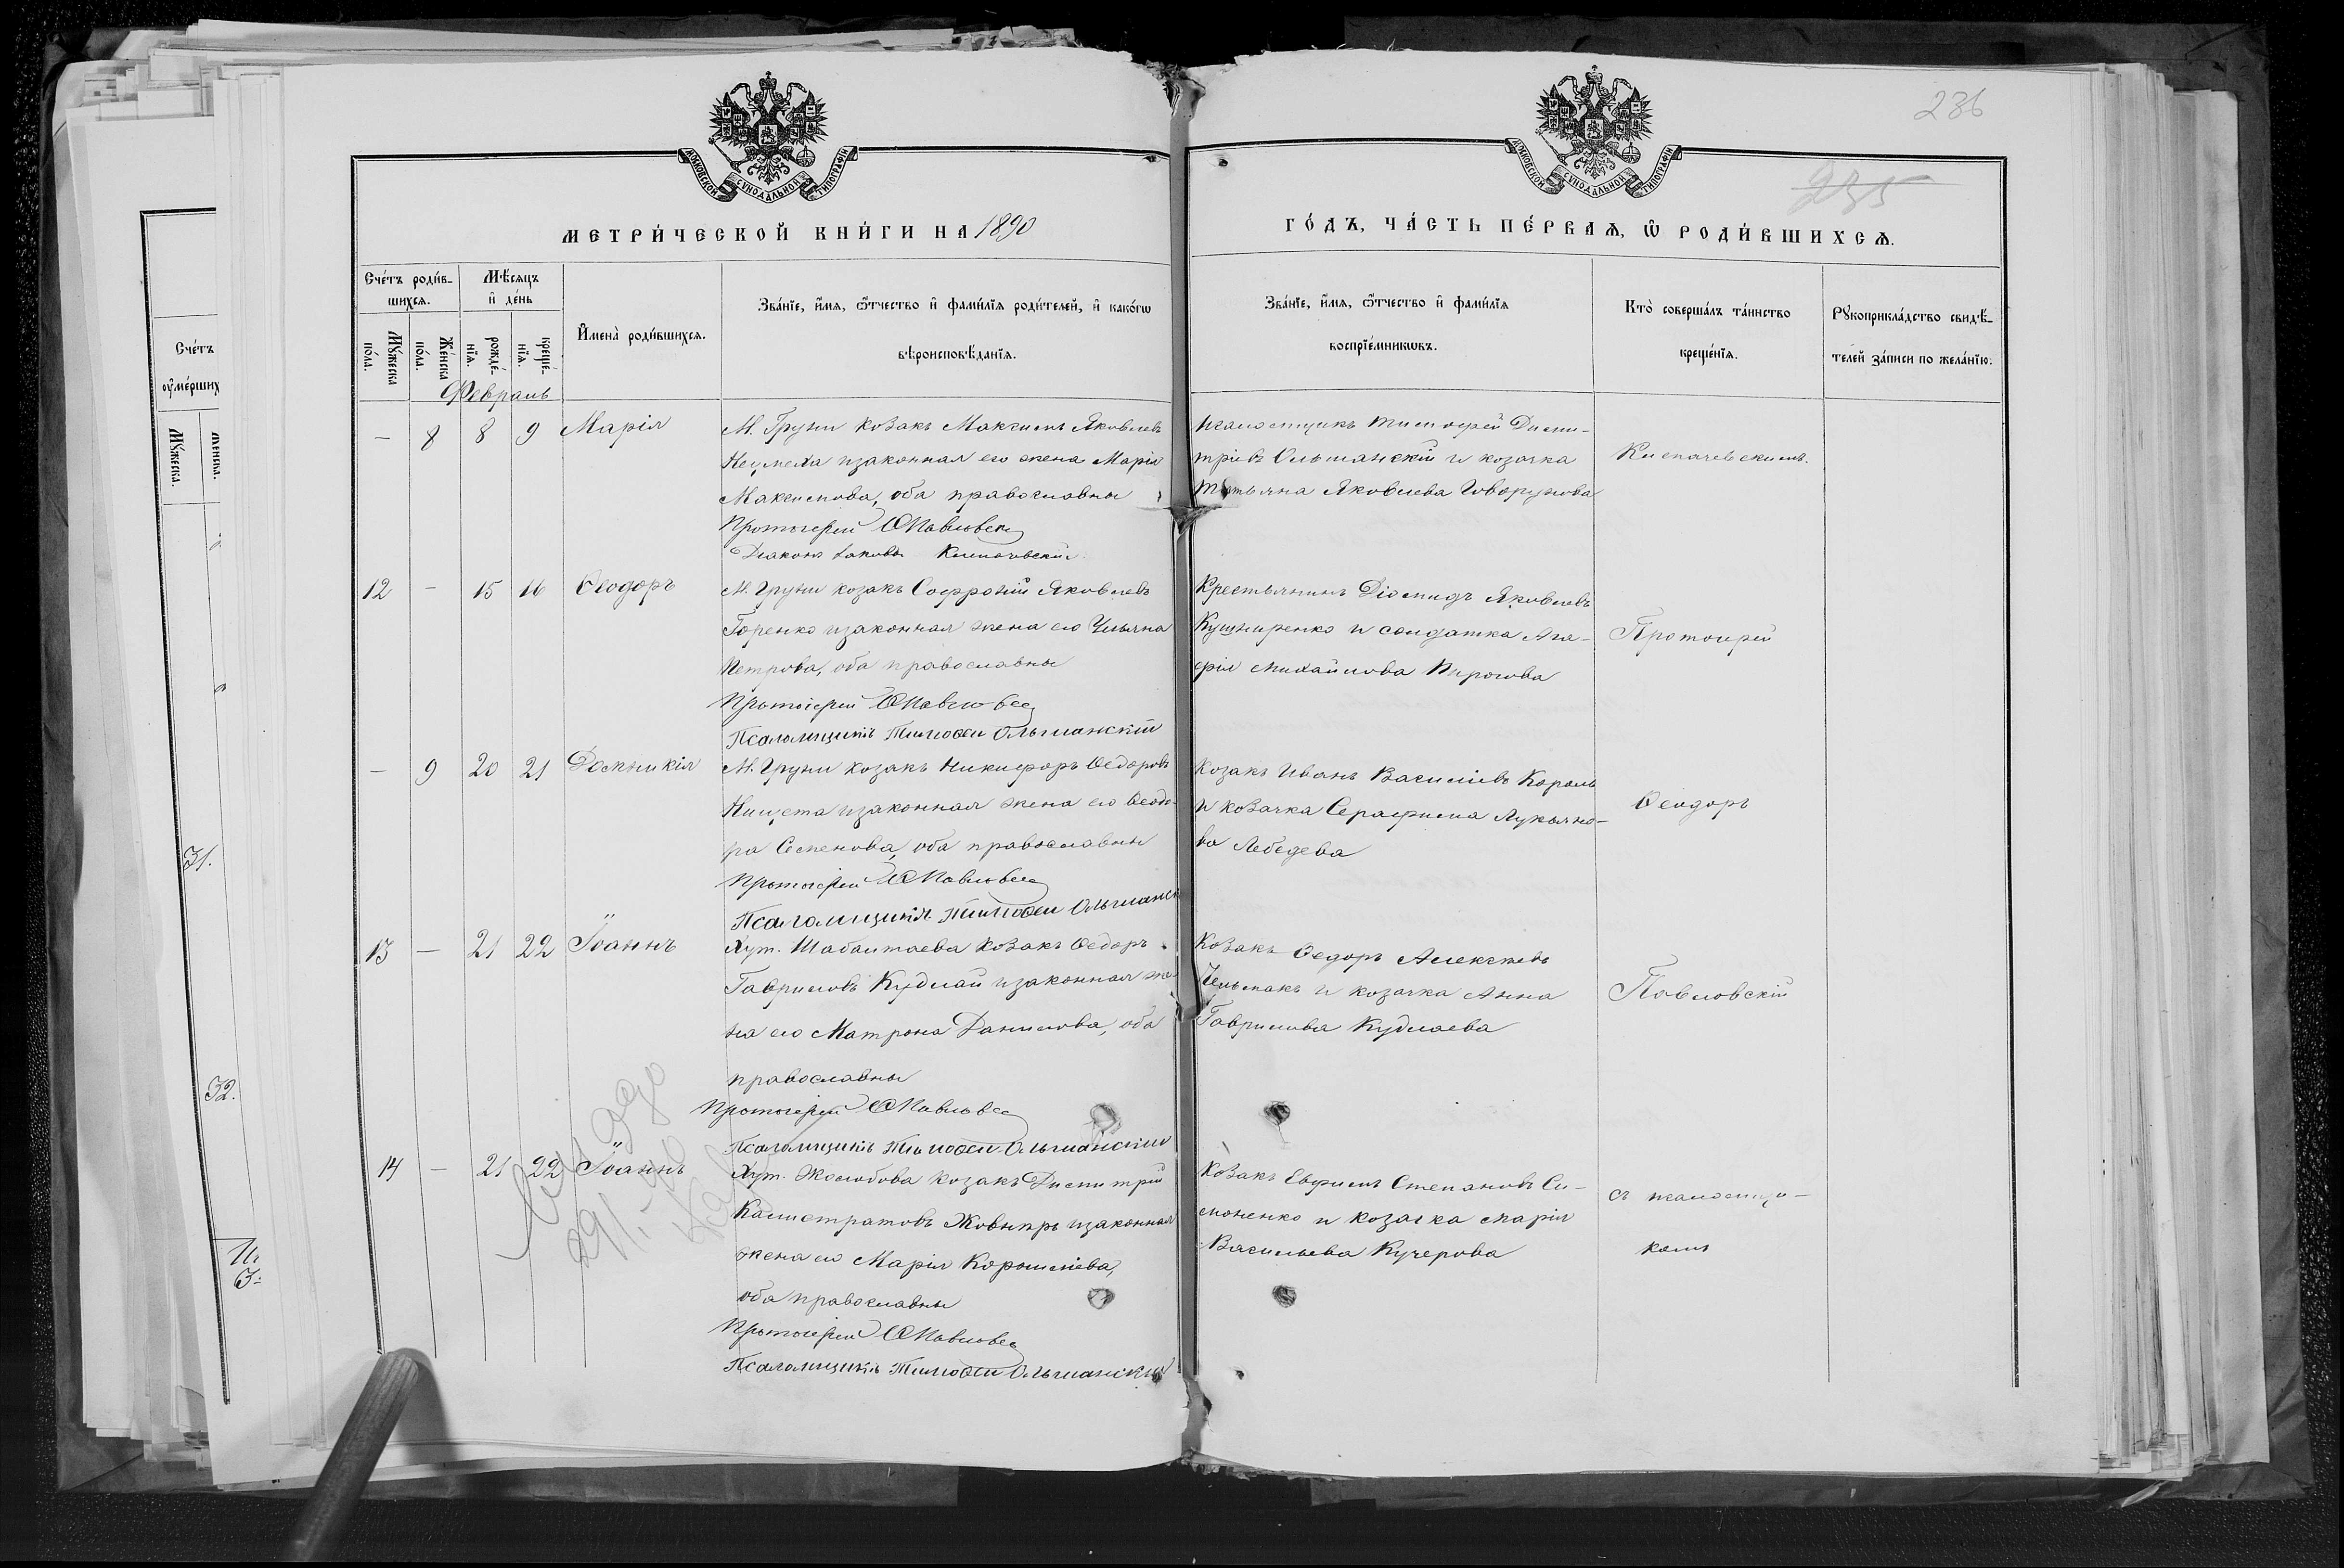 236
235
МОСКОВСКОЙ СУНОДАЛЬНОЙ ТИПОГРАФІИ
МОСКОВСКОЙ СУНОДАЛЬНОЙ ТИПОГРАФІИ
МЕТРИ́ЧЕСКОЙ КНИ́ГИ НА 1890
ГО́ДЪ, ЧА́СТЬ ПЕ́РВАѦ, Ѡ҆ РОДИ́ВШИХСѦ.
Сче́тъ роди́в-
шихсѧ.
Мꙋ́жеска по́ла.
Же́нска по́ла.
Мѣ́сѧцъ
и҆ де́нь
рожде́-
нїѧ.
креще́-
нїѧ.
И҆мена̀ роди́вшихсѧ.
Зва́нїе, и҆́мѧ, ѻ҆́тчество и҆ фами́лїѧ роди́телей, и҆ како́гѡ
вѣроисповѣ́данїѧ.
Зва́нїе, и҆́мѧ, ѻ҆́тчество и҆ фами́лїѧ
воспрїе́мникѡвъ.
Кто̀ соверша́лъ та́инство
креще́нїѧ.
Рꙋкоприкла́дство свидѣ́-
телей за́писи по жела́нїю.
Сче́тъ
ѹ҆ме́рших
Мꙋ́жеска.
Же́нска.
31.
32.
Февраль
— 8 8 9 Марія
М. Груни козакъ Максимъ Яковлевъ
и законная его жена Марія
Максимова, оба православны
Протоіерей Ѳ Павловск
Діаконъ Іаковъ
псаломщикъ Тимофей Дими-
тріевъ Ольшанскій и козачка
Татьяна Яковлева Говорунова
12 — 15 16 Ѳеодоръ
М. Груни козакъ Софроній Яковлевъ
Горенко и законная жена его Ульяна
Петрова, оба православны
Протоіерей Ѳ Павловск
Псаломщикъ Тимоѳей Ольшанскій
Крестьянинъ Діомидъ Яковлевъ
Кушниренко и солдатка Ага-
фія Михайлова Пирогова
Протоіерей
— 9 20 21 Домникія
М. Груни козакъ Никифоръ Ѳедоровъ
Нищета и законная жена его Ѳеодо-
ра Семенова, оба православны
Протоіерей Ѳ Павловск
Псаломщикъ Тимоѳей Ольшанск
Козакъ Иванъ Василіевъ Король
и козачка Серафима Лукьяно-
ва Лебедева
Ѳеодоръ
13 — 21 22 Іоаннъ
Хут. Шабалтаева козакъ Ѳедоръ
Гавриловъ Кудлай и законная же-
на его Матрона Данилова, оба
православны
Протоіерей Ѳ Павловск
Псаломщикъ Тимоѳей Ольшанскій
Козакъ Ѳедоръ Алексѣевъ
и козачка Анна
Гаврилова Кудлаева
Павловскій
14 — 21 22 Іоаннъ
Хут. Жолобова козакъ Димитрій
Калистратовъ Жовниръ и законная
жена его Марія Корниліева,
оба православны
Протоіерей Ѳ Павловск
Псаломщикъ Тимоѳей Ольшанскій
Козакъ Евфимъ Степановъ Си-
моненко и козачка Марія
Васильева Кучерова
съ псаломщи-
комъ